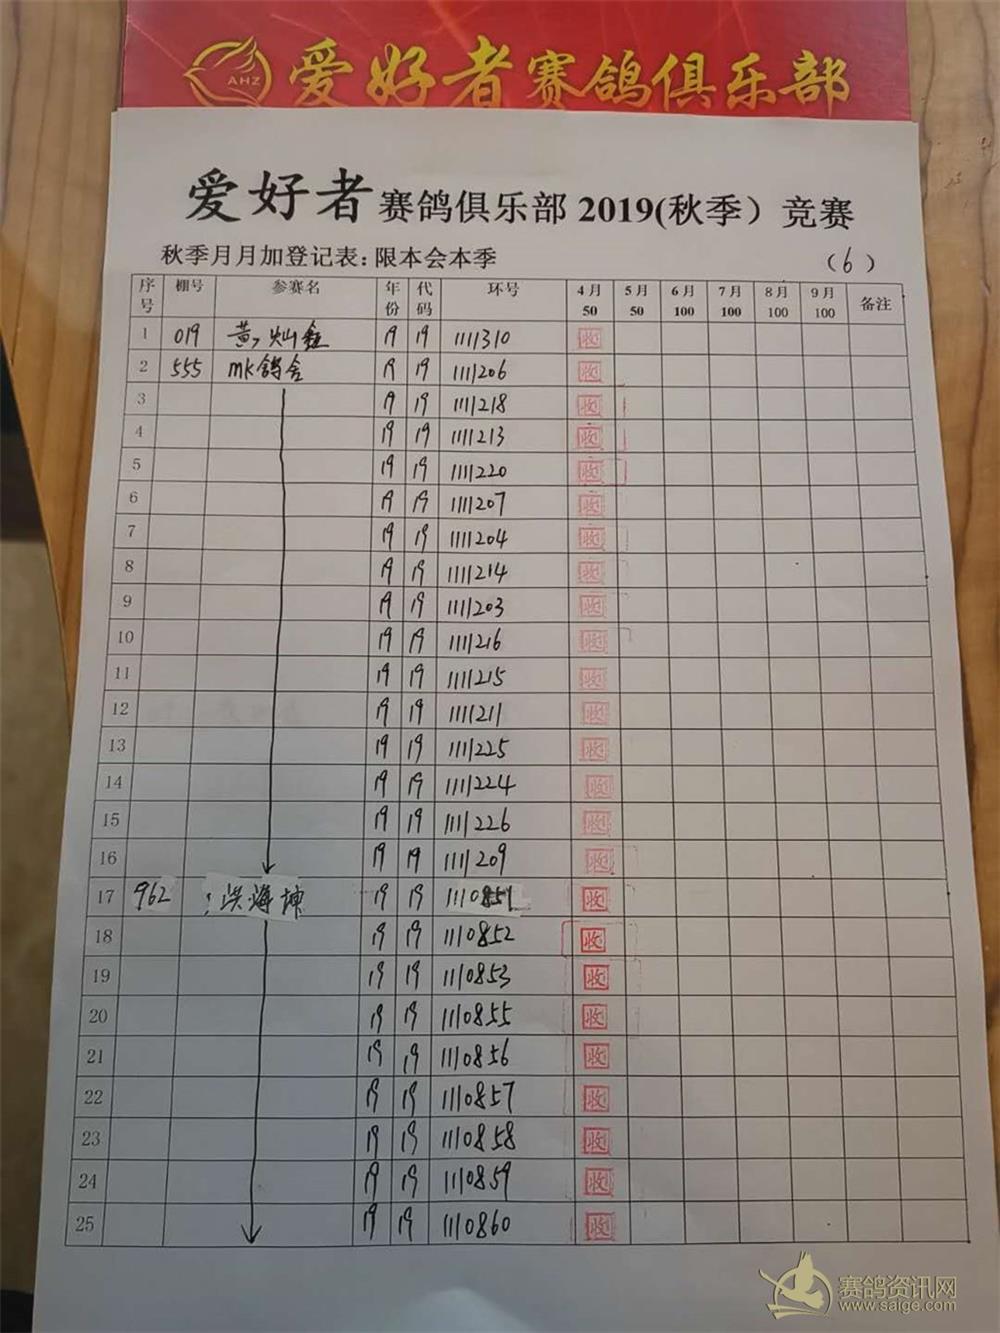 AHZ 爱好者赛鸽俱乐部
爱好者赛鸽俱乐部 2019(秋季） 竞赛
秋季月月加登记表：限本会本季 （6）
序号 棚号 参赛名 年份 代码 环号 4月 50 5月 50 6月 100 7月 100 8月 100 9月 100 备注
1 019 黄灿鑫 19 19 1111310 收
2 555 mk鸽舍 19 19 1111206 收
3 19 19 1111218 收
4 19 19 1111213 收
5 19 19 1111220 收
6 19 19 1111207 收
7 19 19 1111204 收
8 19 19 1111214 收
9 19 19 1111203 收
10 19 19 1111216 收
11 19 19 1111215 收
12 19 19 1111211 收
13 19 19 1111225 收
14 19 19 1111224 收
15 19 19 1111226 收
16 19 19 1111209 收
17 962 洪海坤 19 19 1110851 收
18 19 19 1110852 收
19 19 19 1110853 收
20 19 19 1110855 收
21 19 19 1110856 收
22 19 19 1110857 收
23 19 19 1110858 收
24 19 19 1110859 收
25 19 19 1110860 收
赛鸽资讯网
www.saige.com